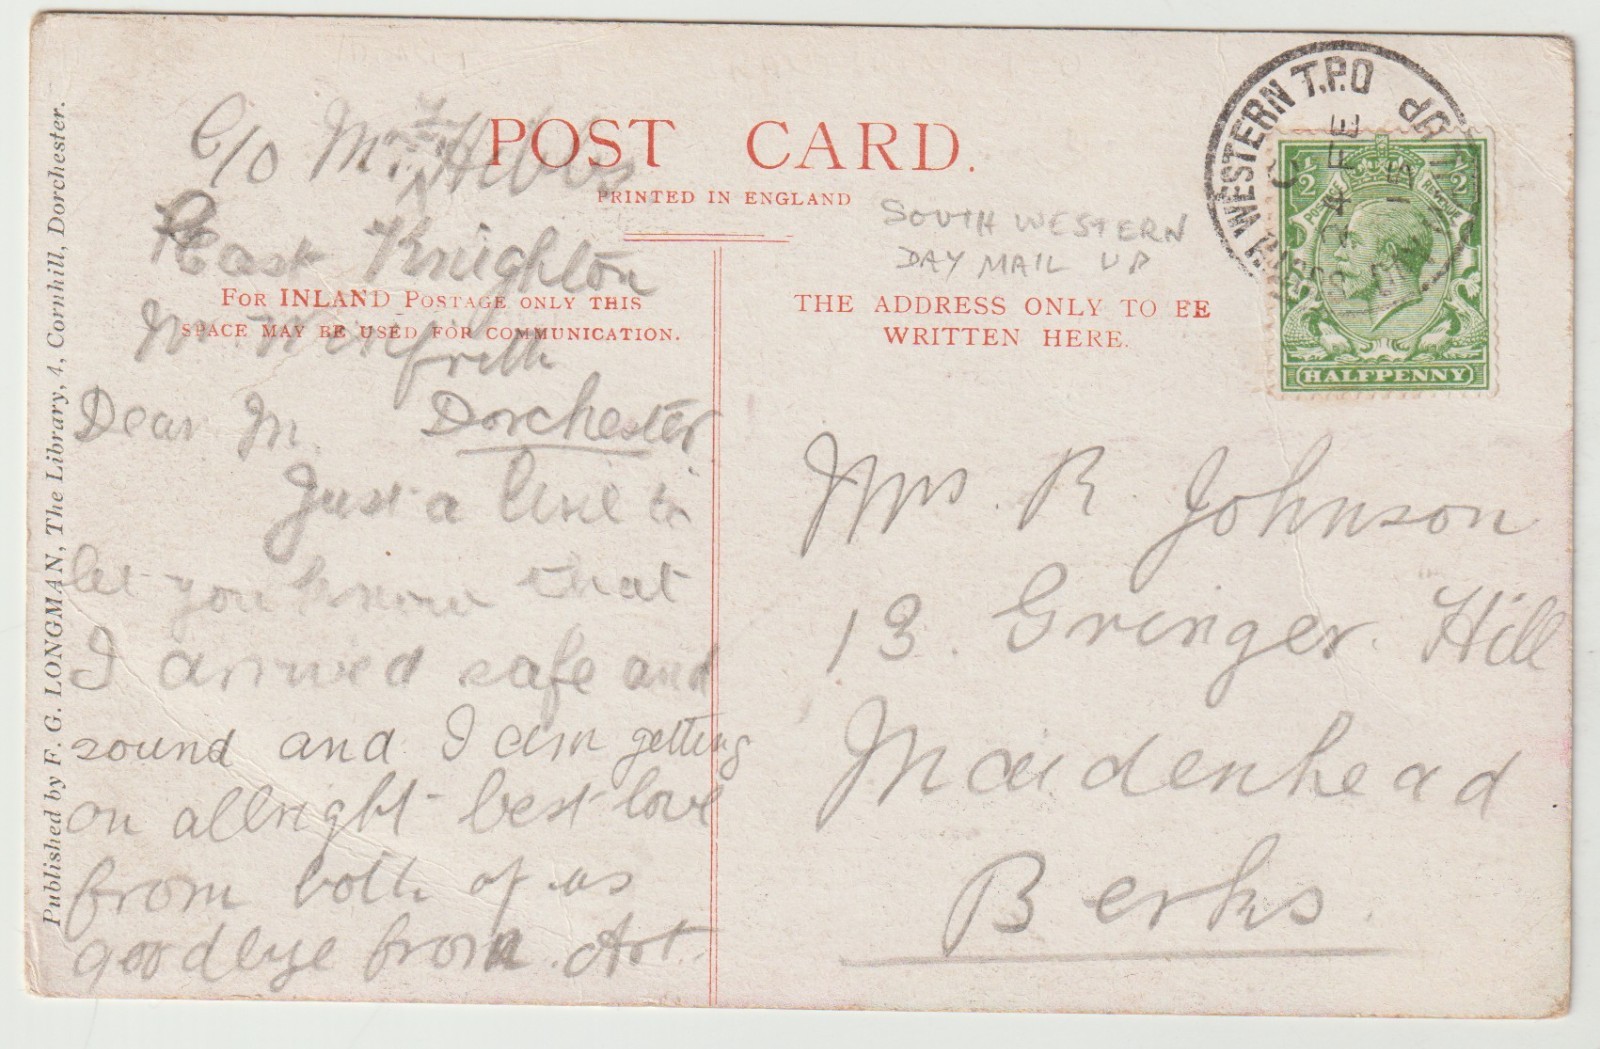 Published by F. G. LONGMAN, The Library, 4, Cornhill, Dorchester.
POST CARD.
PRINTED IN ENGLAND
FOR INLAND POSTAGE ONLY THIS
SPACE MAY BE USED FOR COMMUNICATION.
THE ADDRESS ONLY TO BE
WRITTEN HERE.
C/O Mrs Hibbs
East Knighton
Nr Winfrith
Dorchester
Dear M.
Just a line to
let you know that
I arrived safe and
sound and I am getting
on allright best love
from both of us
goodbye from Art.
SOUTH WESTERN
DAY MAIL UP
SOUTH WESTERN T.P.O
DAY MAIL UP
24 FE
15
POSTAGE REVENUE
1/2 1/2
HALFPENNY
Mrs. R. Johnson
13. Gringer. Hill
Maidenhead
Berks.